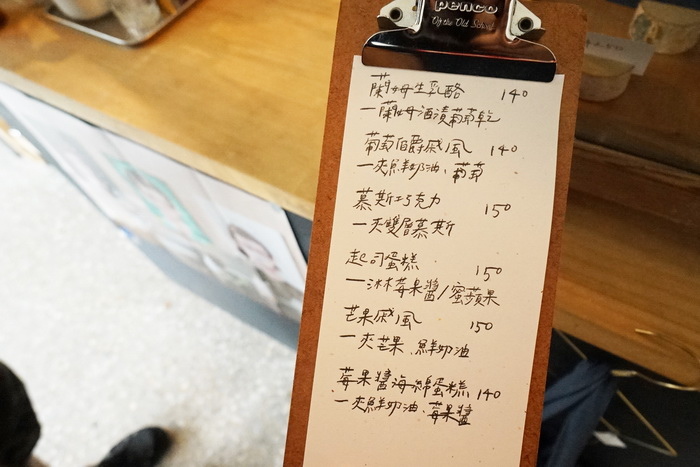 penco
Of the Old School
蘭姆生乳酪 140
一蘭姆酒漬葡萄乾
葡萄伯爵戚風 140
一夾鮮奶油、葡萄
慕斯巧克力 150
一夾雙層慕斯
起司蛋糕 150
一淋莓果醬/蜜蘋果
芒果戚風 150
一夾芒果、鮮奶油
莓果醬海綿蛋糕 140
一夾鮮奶油、莓果醬